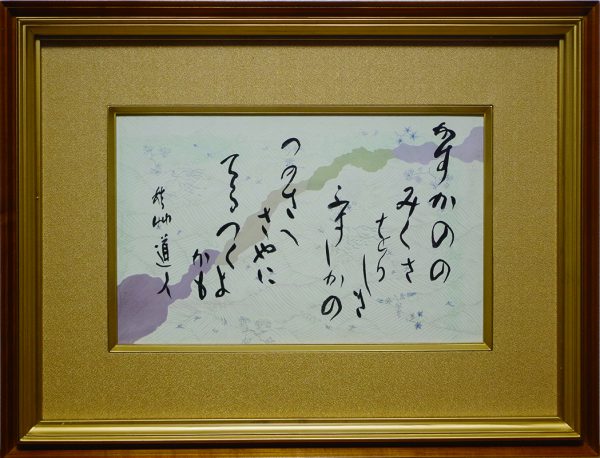 かすかのの
みくさ
をりしき
ふすしかの
つのさへ
さやに
てるつくよ
かも
秋艸道人